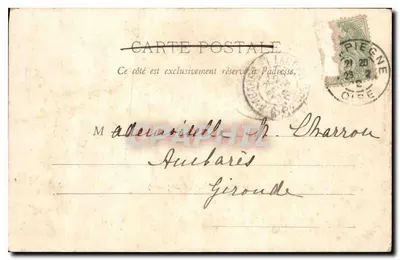 CARTE POSTALE
Ce côté est exclusivement réservé à l'adresse.
PIEGNE
21 20
23 2
OISE
Mademoiselle R. Charron
Ambarès
Gironde